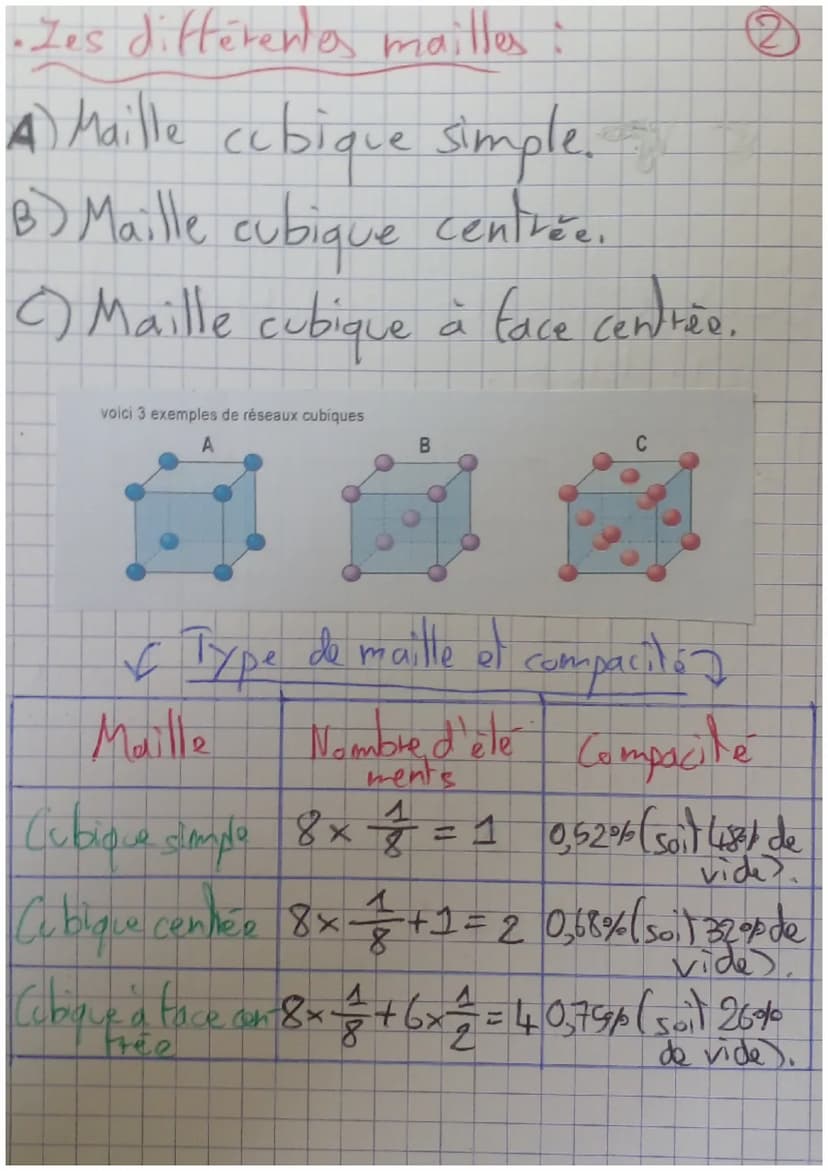 . Les différentes mailles : 2
A) Maille cubique simple.
B) Maille cubique centrée.
C) Maille cubique à face centrée.
voici 3 exemples de réseaux cubiques
A B C
Type de maille et compacité
Maille Nombre d'élé Compacité
ments
Cubique simple 8 × 1/8 = 1 0,52% (soit 48% de
vide).
Cubique centrée 8 × 1/8 + 1 = 2 0,68% (soit 32% de
vide).
Cubique à face cen- 8 × 1/8 + 6 × 1/2 = 4 0,74% (soit 26%
trée de vide).